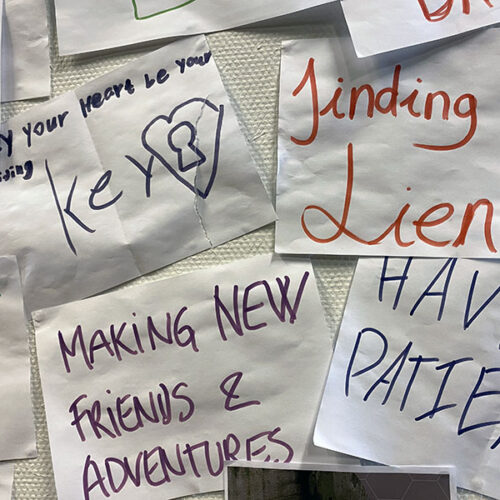 y your Heart be your
key
Finding
Lien
HAV
PATIE
MAKING NEW
FRIENDS &
ADVENTURES